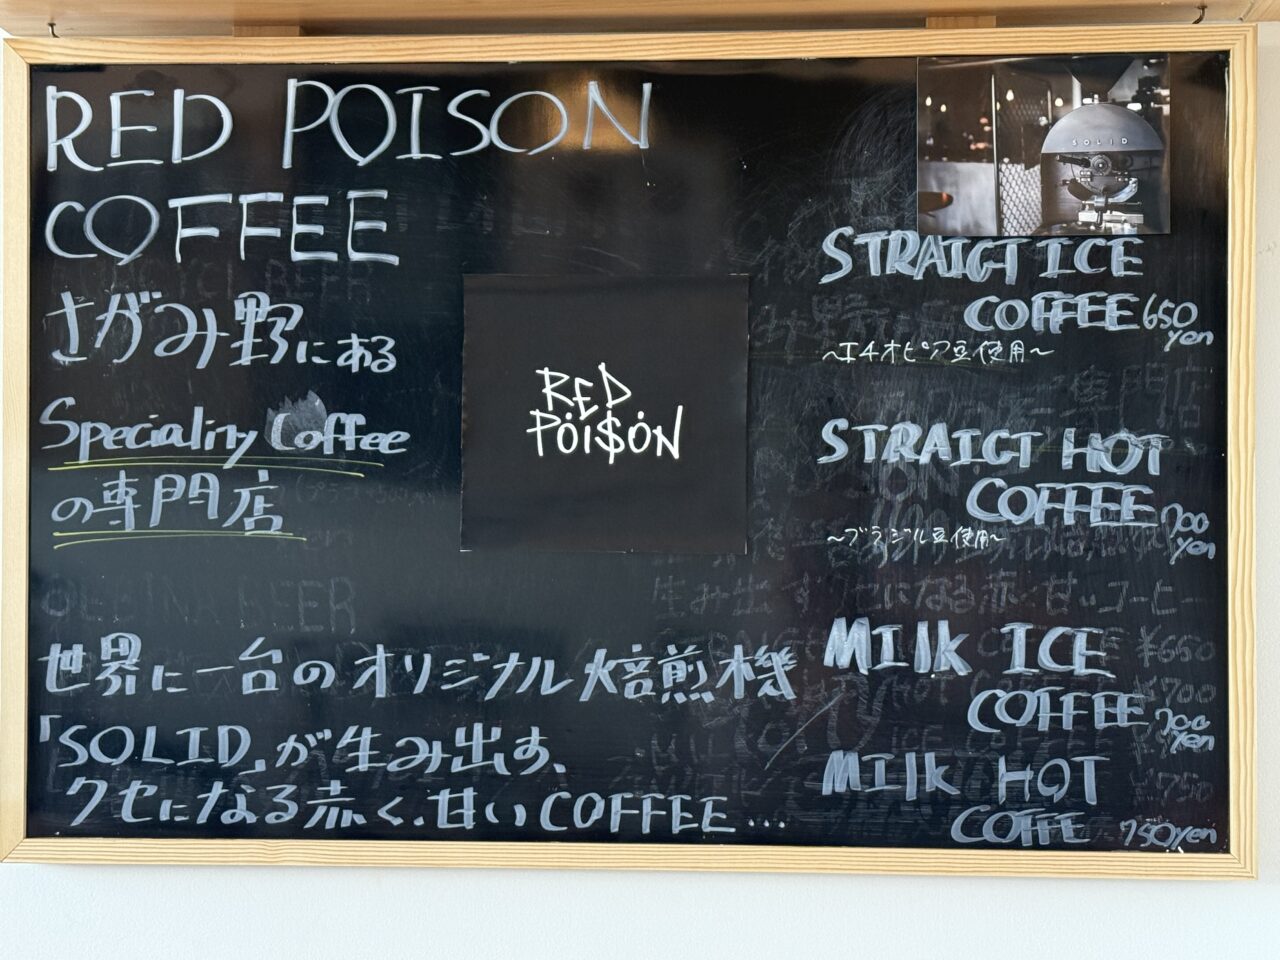 RED POISON
COFFEE
さがみ野にある
Speciality Coffee
の専門店
世界に一台のオリジナル焙煎機
「SOLID」が生み出す、
クセになる赤く、甘いCOFFEE…
RED
POI$ON
SOLID
STRAIGT ICE
COFFEE 650
yen
〜エチオピア豆使用〜
STRAIGT HOT
COFFEE 700
yen
〜ブラジル豆使用〜
生み出す
になる赤く甘いコーヒー
MIlk ICE
¥650
COFFEE 700
yen
¥700
MIlk HOT
¥750
COFFE 750yen